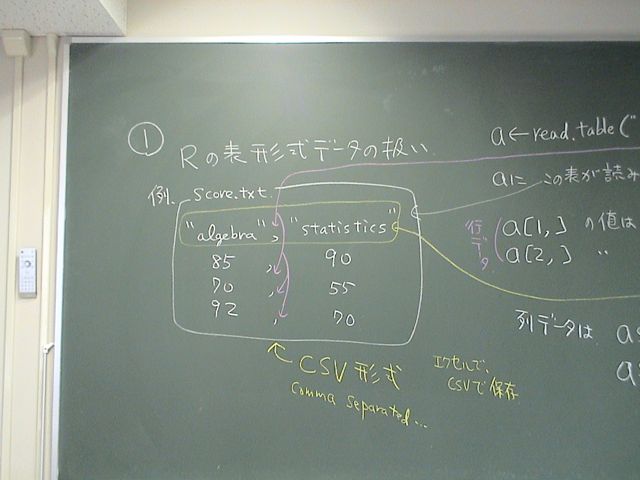 ①
Rの表形式データの扱い
例. score.txt
"algebra", "statistics"
85 , 90
70 , 55
92 , 70
CSV形式
comma separated...
エクセルで、
CSVで保存
a←read.table("
aに この表が読み
行データ
a[1, ] の値は
a[2, ] 〃
列データは
a
a